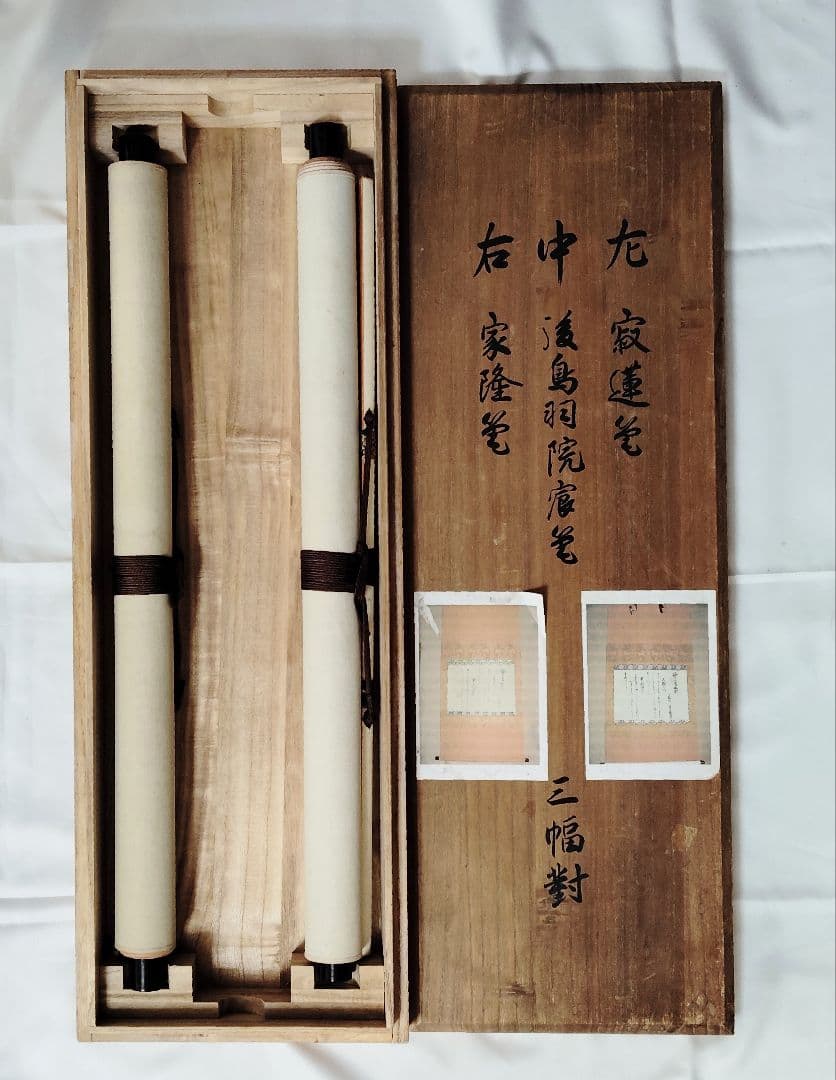 左 寂蓮筆
中 後鳥羽院宸筆
右 家隆筆
三幅對